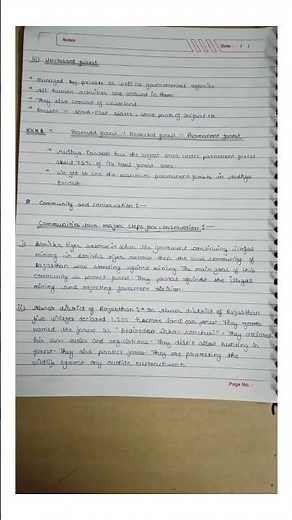 Notes
Date : / /
iii) Unclassed forest
→ Managed by private as well as governmental agencies
→ All human activities are allowed in them
→ They also consist of wasteland
→ Exists in north-east states, some parts of Gujrat etc
Reserved forest + Protected forest = Permanent forest
→ Madhya Pradesh has the largest area under permanent forest
about 75% of its total forest area
→ We get to see the maximum permanent forests in Madhya
Pradesh
Community and conservation :-
Communities own major steps for conservation :-
i) Sariska tiger reserve :- when the government continuing illegal
mining in Sariska tiger reserve then the local community of
Rajasthan was standing against mining. The main goal of this
community is protect forest. They protest against the illegal
mining and rejecting government decision.
ii) Alwar district of Rajasthan :- In Alwar district of Rajasthan
five villages declared 1,200 hectare land for forest. They
named the forest as "Bhairodev Dakav Sonchuri". They declared
his own rules and regulations. They didn't allow hunting in
forest. They also protect forest. They are protecting the
wildlife against any outside encroachment.
Page No. :